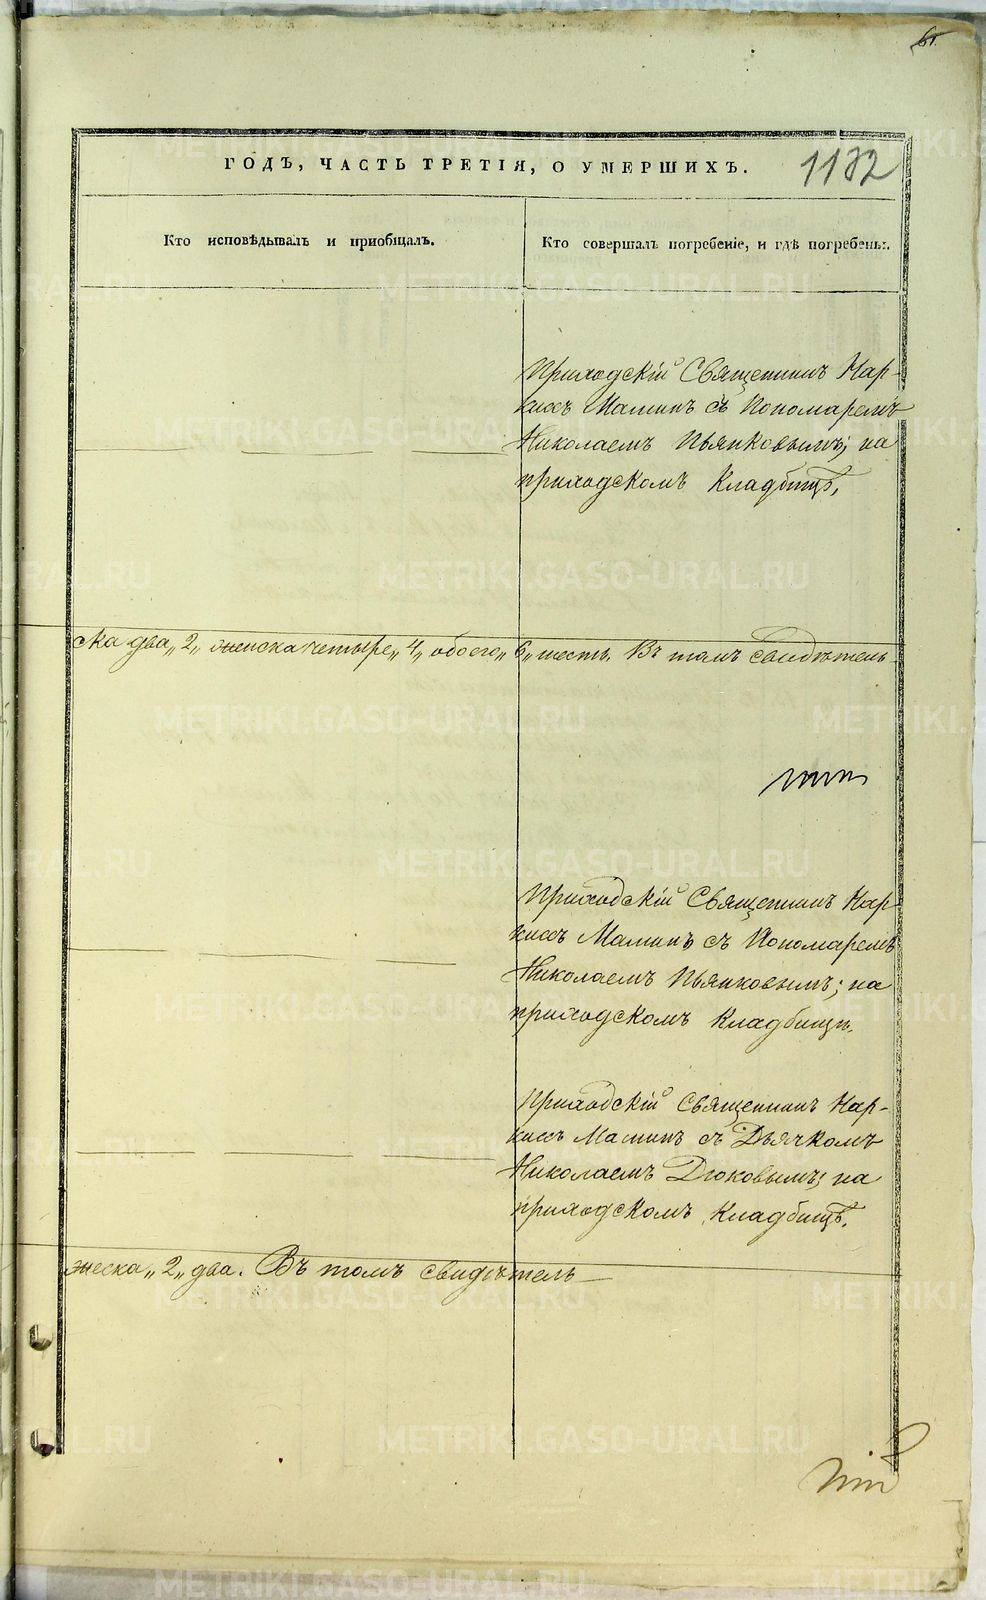 65.
1132
ГОДЪ, ЧАСТЬ ТРЕТІЯ, О УМЕРШИХЪ.
Кто исповѣдывалъ и пріобщалъ.
Кто совершалъ погребеніе, и гдѣ погребены.
Приходскій Священникъ Нар-
киссъ Маминъ съ Пономаремъ
Николаемъ Пьянковымъ; на
приходскомъ Кладбищѣ.
ска два „2„ женска четыре „4„ обоего „6„ шесть. Въ томъ свидѣтель-
Приходскій Священникъ Нар-
киссъ Маминъ съ Пономаремъ
Николаемъ Пьянковымъ; на
приходскомъ Кладбищѣ.
Приходскій Священникъ Нар-
киссъ Маминъ съ Дьячкомъ
Николаемъ Дюковымъ; на
приходскомъ Кладбищѣ.
женска „2„ два. Въ томъ свидѣтель-
METRIKI.GASO-URAL.RU